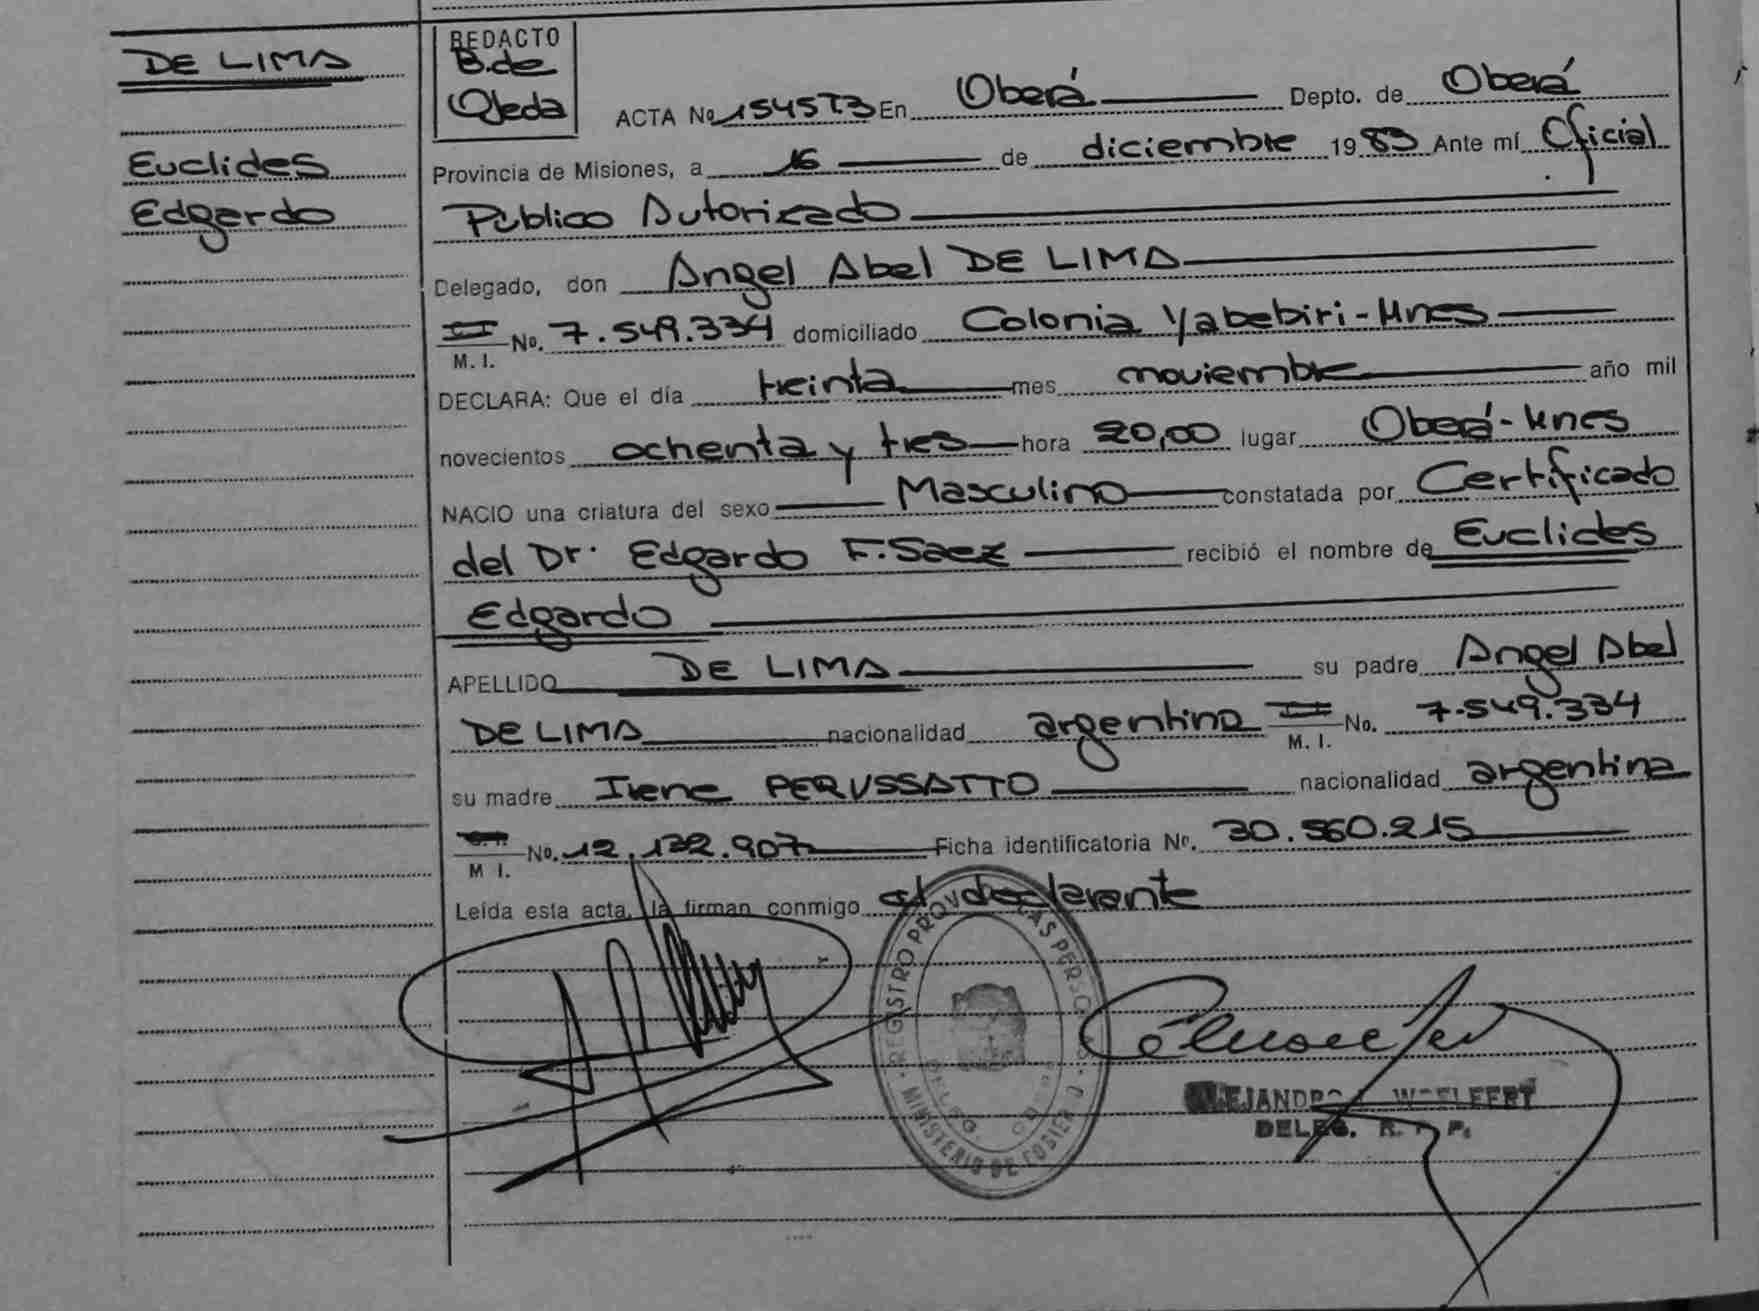 DE LIMA
Euclides
Edgardo
REDACTO
B.de
Ojeda
ACTA No 1545T3 En Oberá Depto. de Oberá
Provincia de Misiones, a 16 de diciembre 1983 Ante mí Oficial
Público Autorizado
Delegado, don Angel Abel DE LIMA
M. I. No. 7.549.334 domiciliado Colonia Yabebiri-Mnes
DECLARA: Que el día treinta mes noviembre año mil
novecientos ochenta y tres hora 20,00 lugar Oberá-Mnes
NACIO una criatura del sexo Masculino constatada por Certificado
del Dr. Edgardo F. Saez recibió el nombre de Euclides
Edgardo
APELLIDO DE LIMA su padre Angel Abel
DE LIMA nacionalidad argentina M. I. No. 7.549.334
su madre Irene PERUSSATTO nacionalidad argentina
M I. No. 12.132.907 Ficha identificatoria No. 30.560.215
Leída esta acta, la firman conmigo el declarante
REGISTRO PROV LAS PERSO
MINISTERIO DE
DELEG.